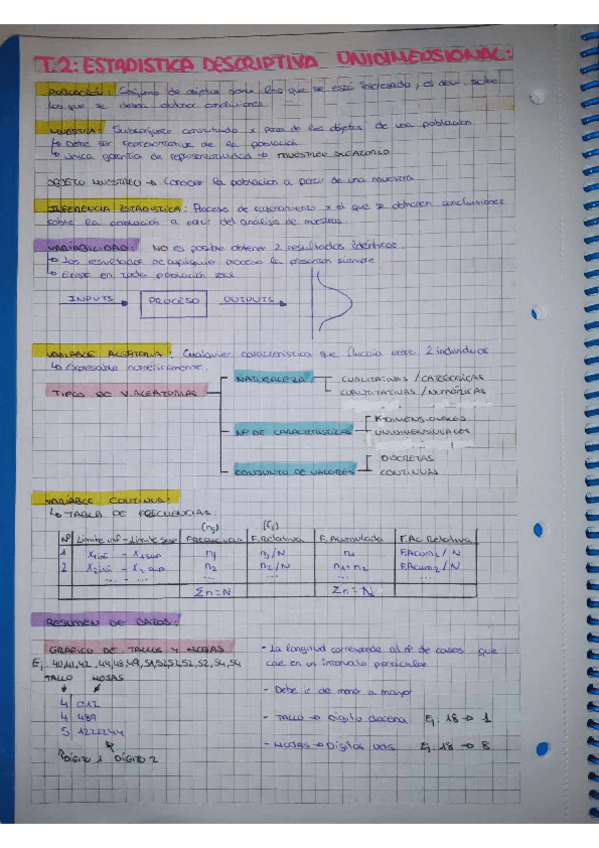 T.2: ESTADISTICA DESCRIPTIVA UNIDIMENSIONAL:
POBLACIÓN: Conjunto de objetos sobre los que se está interesado, es decir, sobre
los que se desea obtener conclusiones.
MUESTRA: Subconjunto constituido x parte de los objetos de una población
↳ Debe ser representativa de la población
↳ Única garantía de representatividad → MUESTREO ALEATORIO
OBJETO MUESTREO → Conocer la población a partir de una muestra
INFERENCIA ESTADISTICA: Proceso de razonamiento x el que se obtienen conclusiones
sobre la población a partir del análisis de muestras
VARIABILIDAD: NO es posible obtener 2 resultados idénticos
↳ Los resultados de cualquier proceso la presentan siempre
↳ Existe en toda población real
INPUTS → PROCESO OUTPUTS →
VARIABLE ALEATORIA: Cualquier característica que fluctúa entre 2 individuos
↳ Expresable numéricamente.
TIPOS DE V.ALEATORIAS
NATURALEZA
CUALITATIVAS / CATEGÓRICAS
CUANTITATIVAS / NUMÉRICAS
Nº DE CARACTERÍSTICAS
K-DIMENSIONALES
UNIDIMENSIONALES
CONJUNTO DE VALORES
DISCRETAS
CONTINUAS
VARIABLE CONTINUA:
↳ TABLA DE FRECUENCIAS:
(ni) (fi)
Nº Límite inf - Límite sup Frecuencia F.Relativa F. Acumulada F.Ac. Relativa
1 X1inf - X1sup n1 n1/N n1 F.Acum1 / N
2 X2inf - X2sup n2 n2/N n1+n2 F.Acum2 / N
... - ... ... ... ... ...
Σn=N Σn=N
RESUMEN DE DATOS:
GRÁFICO DE TALLOS Y HOJAS
Ej. 40,41,42, 44,48,49, 51,52,52,52, 52, 54, 54
TALLO HOJAS
4 | 012
4 | 489
5 | 1222244
DÍGITO 1 DÍGITO 2
- La longitud corresponde al nº de casos que
cae en un intervalo particular
- Debe ir de menor a mayor
- TALLO → Dígito decena Ej. 18 → 1
- HOJAS → Dígitos uds Ej. 18 → 8